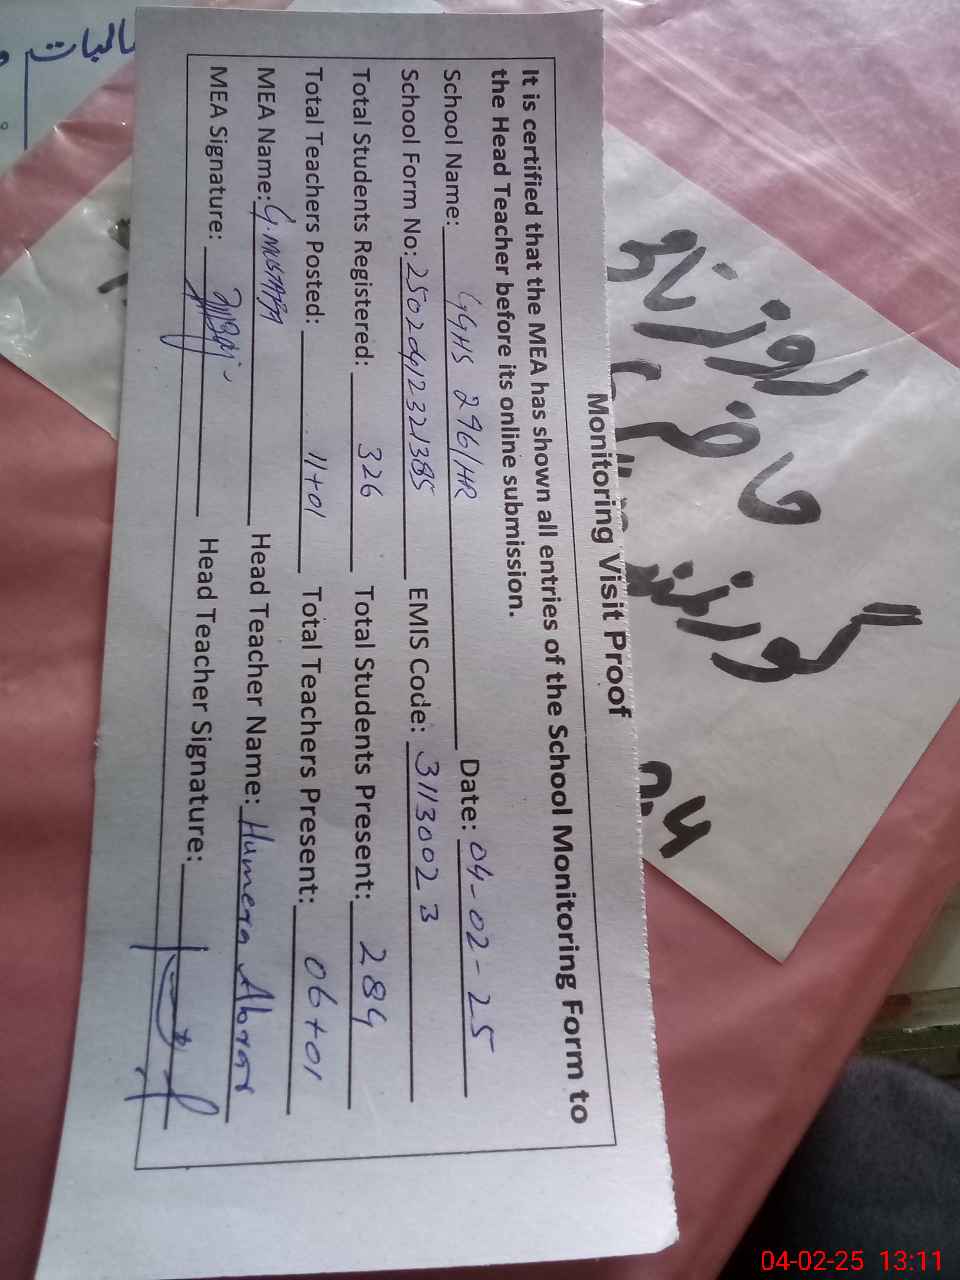 Monitoring Visit Proof
It is certified that the MEA has shown all entries of the School Monitoring Form to
the Head Teacher before its online submission.
School Name: GGHS 296/HR Date: 04-02-25
School Form No: 25020412321385 EMIS Code: 31130023
Total Students Registered: 326 Total Students Present: 284
Total Teachers Posted: 11+01 Total Teachers Present: 06+01
MEA Name: G.MUSTAFA Head Teacher Name: Humera Abrar
MEA Signature: Head Teacher Signature:
گورنمنٹ
حاضری
روزنامچہ
04-02-25 13:11